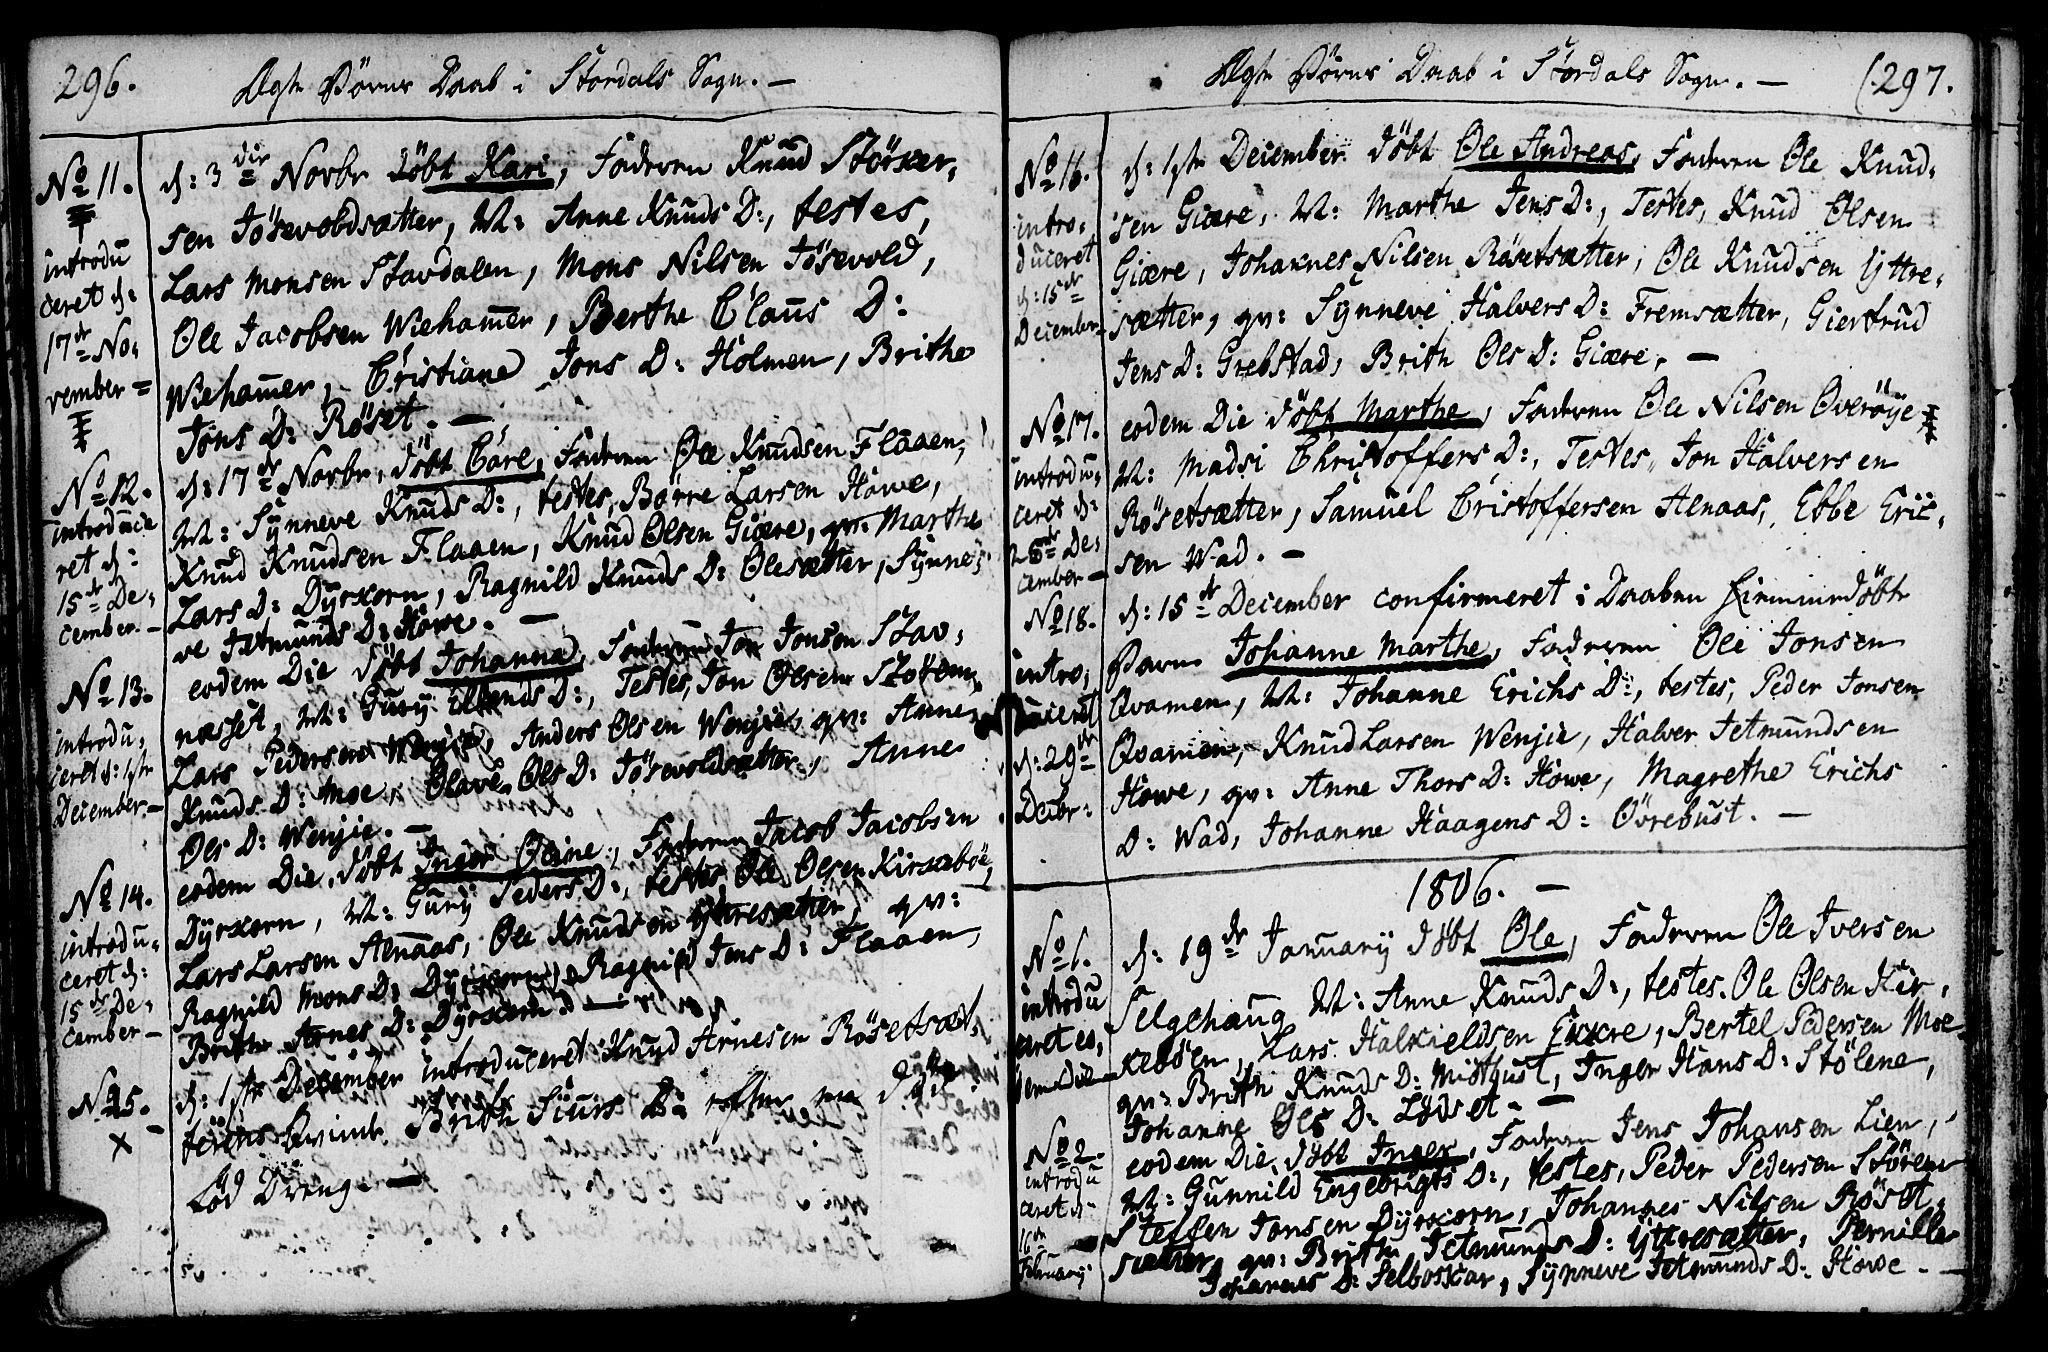 296.
Ægte Børns Daab i Stordals Sogn. —
No 11.
introdu
ceret d:
17de No,
vember =
d: 3die Novbr döbt Kari, Faderen Knud Störker,
sen Jösevoldsætter, M: Anne Knuds D:, testes,
Lars Monsen Stavdalen, Mons Nilsen Jösevold,
Ole Jacobsen Wiehammer, Berthe Claus D:
Wiehammer, Cristiane Jons D: Holmen, Brithe
Jons D: Röset. —
No 12.
introduce
ret d:
15de De,
cember. —
d: 17de Novbr, döbt Care, Faderen Ole Knudsen Flaaen,
M: Synneve Knuds D:, testes, Börre Larsen Howe,
Knud Knudsen Flaaen, Knud Olsen Giære, qv: Marthe
Lars D: Dyrkorn, Ragnild Knuds D: Olesætter, Synne,
ve Jetmunds D: Howe. —
No 13.
introdu,
ceret d: 1ste
December —
eodem Die döbt Johanna, Faderen Jon Jonsen Stav,
næsset, M: Gury Ellends D:, Testes, Jon Olsen
Lars Pedersen Wenjie, Anders Olsen Wenjie, qv: Anne
Knuds D: Moe, Olave Ols D: Jösevoldsætter, Anne
Ols D: Wenjie. —
No 14.
introdu,
ceret d:
15de De,
cember —
eodem Die, döbt Inger Oline, Faderen Jacob Jacobsen
Dyrkorn, M: Gury Peders D:, testes, Ole Olsen Kirkeböe,
Lars Larsen Alnaas, Ole Knudsen Yttresætter, qv:
Ragnild Mons D: Dyrkorn, Ragnild Jens D: Flaaen,
Brithe Arnes D: Dyrkorn. —
No 15.
×
d: 1ste December introduceret Knud Arnesen Rösetsæt,
terens Qvinde Brith Siurs D: efter en
Död Dreng. —
Ægte Börns Daab i Stordals Sogn. —
(297.
No 16.
intro,
duceret
d: 15de
December —
d: 1ste December döbt Ole Andreas, Faderen Ole Knud,
sen Giære, M: Marthe Jens D:, Testes, Knud Olsen
Giære, Johannes Nilsen Rösetsætter, Ole Knudsen Yttre,
sætter, qv: Synneve Halvers D: Fremsætter, Giertrud
Jens D: Grebstad, Brith Ols D: Giære. —
No 17.
introdu,
ceret d:
26de De,
cember —
eodem Die döbt Marthe, Faderen Ole Nilsen Overöye
M: Madsi Christoffers D:, Testes, Jon Halversen
Rösetsætter, Samuel Cristoffersen Alnaas, Ebbe Eric,
sen Wad. —
No 18.
intro,
duceret
d: 29de
Decbr:
d: 15de December confirmeret i Daaben hiemmedöbte
Barn Johanne Marthe, Faderen Ole Jonsen
Qvamen, M: Johanne Erichs D:, testes, Peder Jonsen
Qvamen, Knud Larsen Wenjie, Halver Jetmundsen
Howe, qv: Anne Thors D: Howe, Magrethe Erichs
D: Wad, Johanne Haagens D: Övrebust. —
1806. —
No 1.
introdu
ceret eo,
dem die —
d: 19de January döbt Ole, Faderen Ole Iversen
Selgehaug M: Anne Knuds D:, testes. Ole Olsen Kir,
keböen, Lars Halkieldsen Ekkre, Bertel Pedersen Moe
qv: Brith Knuds D: Midtgust, Inger Hans D: Stölene,
Johanne Ols D: Lödset. —
No 2.
introdu
ceret d:
16de
February
eodem Die, döbt Inger, Faderen Jens Johansen Lien,
M: Gunnild Engebrigts D:, testes, Peder Pedersen Stören
Steffen Jonsen Dyrkorn, Johannes Nilsen Röset,
sætter, qv: Brithe Jetmunds D: Yttresætter, Pernille
Johannes D: Selboskar, Synneve Jetmunds D: Howe. —